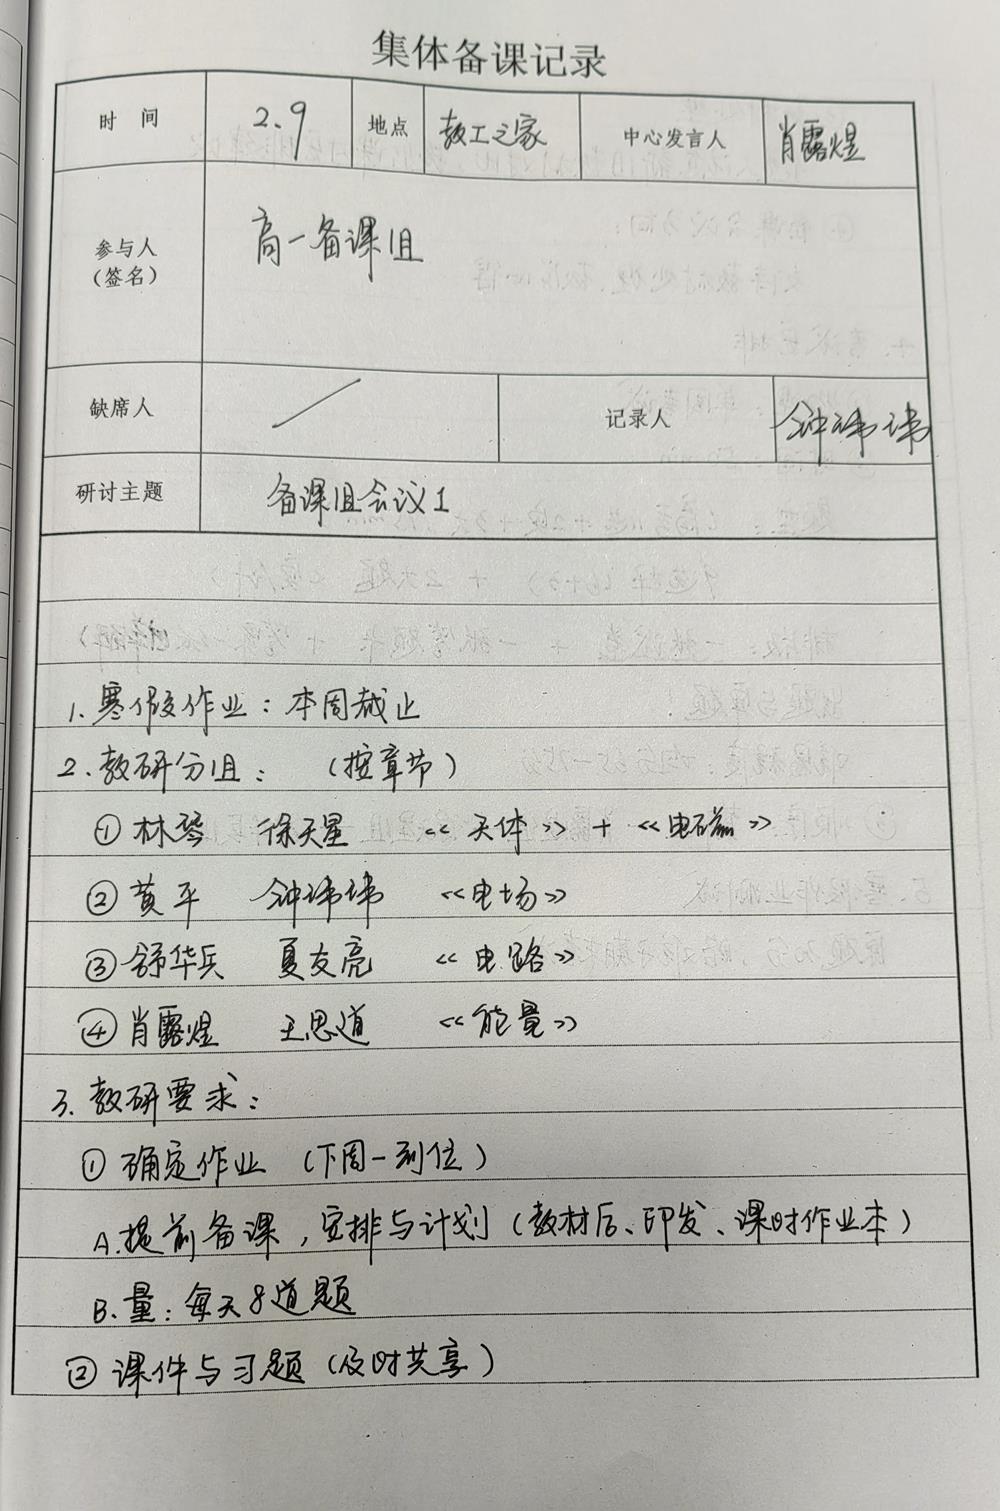 集体备课记录
时 间 2.9 地点 教工之家 中心发言人 肖露煜
参与人
(签名) 高一备课组
缺席人 / 记录人 钟玮玮
研讨主题 备课组会议1
1.寒假作业:本周截止
2.教研分组: (按章节)
①林琴 徐天星 《天体》+《电磁》
②黄平 钟玮玮 《电场》
③舒华兵 夏友亮 《电路》
④肖露煜 王思道 《能量》
3.教研要求:
①确定作业 (下周一到位)
A.提前备课,安排与计划(教材后、印发、课时作业本)
B.量:每天8道题
②课件与习题(及时共享)